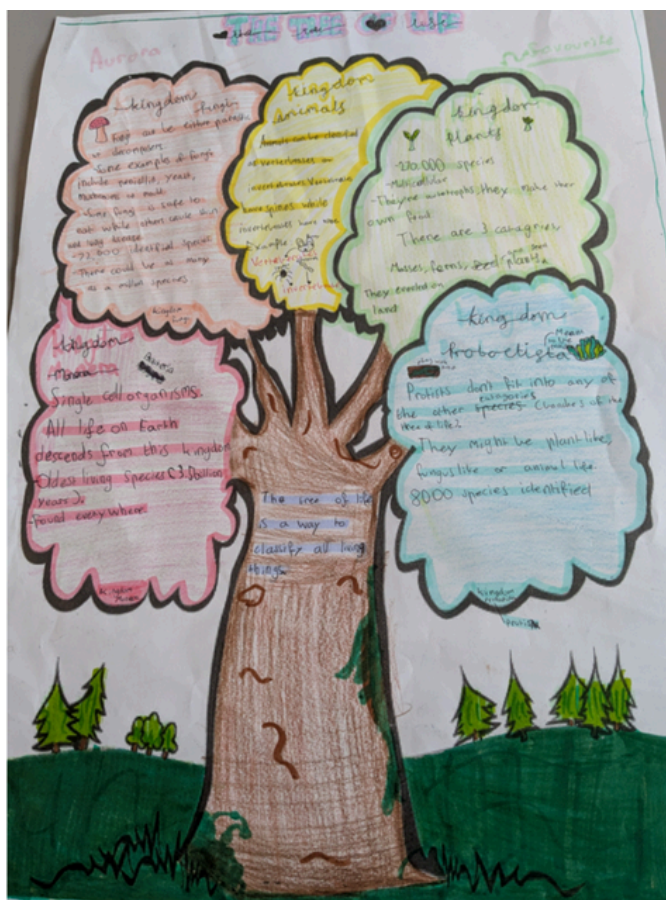 THE TREE OF LIFE
Aurora
Kingdom
Fungi
Fungi can be either parasites
or decomposers
-Some example of fungi
include penicillin, yeast,
mushrooms or mold.
-Some fungi is safe to
eat while others could
and may
-72,000 identified species
There could be as many
as a million species
Kingdom
Fungi
Kingdom
animals
Animals can be classified
as Vertebrates or
invertebrates Vertebrates
have spines while
invertebrates have none
Example
Vertebrates
invertebrates
Kingdom
plants
-270,000 species
-Multicellular
-They're autotrophs, they make their
own food
There are 3 catagries
Mosses, ferns, and seed plants
They evolved on
land
Kingdom
Monera
Bacteria
Single cell organisms.
All life on Earth
descends from this kingdom
-Oldest living species (3.5 billion
years).
-Found everywhere.
Kingdom
Monera
Kingdom
Protoctista
Protists don't fit into any of
the other species categories (branches of the
tree of life)
They might be plant like,
fungus like or animal like.
8000 species identified
Kingdom
The tree of life
is a way to
classify all living
things.